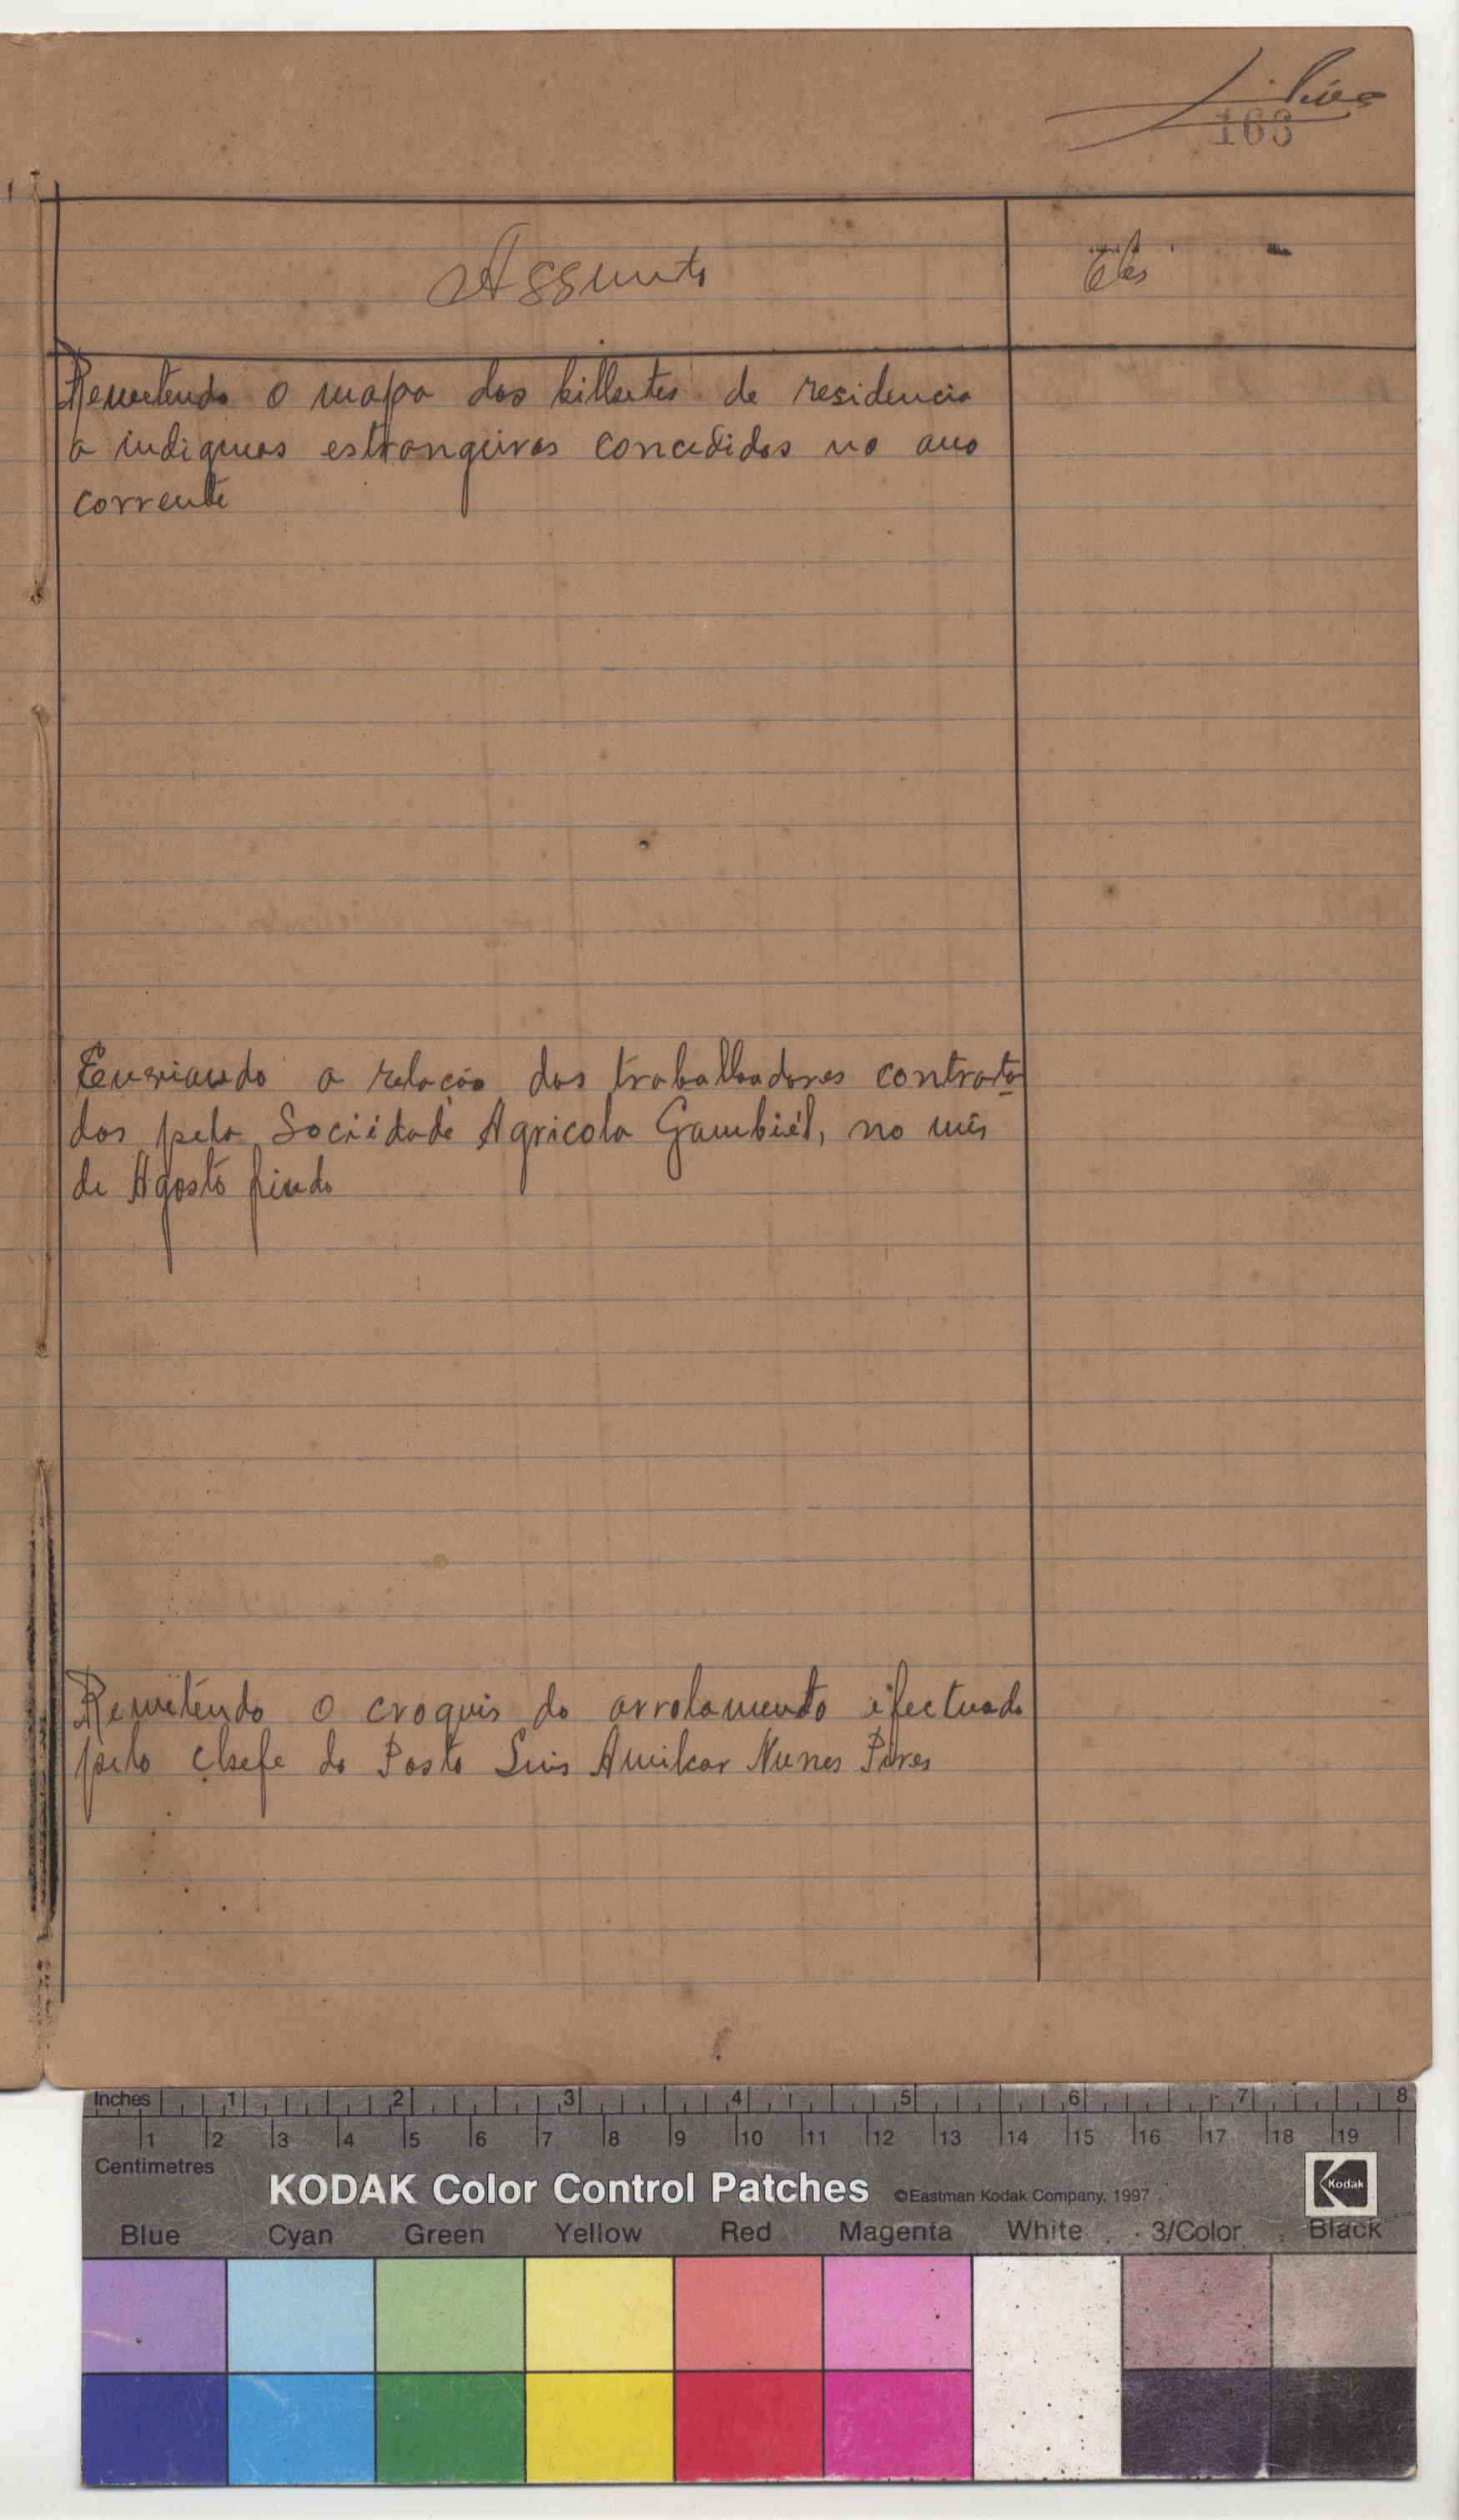 163
Assunto
Remetendo o mapa dos bilhetes de residencia
a indigenas estrangeiros concedidos no ano
corrente
Enviando a relação dos trabalhadores contrata-
dos pela Sociédade Agricola Gambiél, no mês
de Agosto findo
Remetendo o croquis do arrolamento efectuado
pelo chefe do Posto Luis Amilcar Nunes Pires
Inches 1 2 3 4 5 6 7 8
1 2 3 4 5 6 7 8 9 10 11 12 13 14 15 16 17 18 19
Centimetres
KODAK Color Control Patches ©Eastman Kodak Company, 1997 Kodak
Blue Cyan Green Yellow Red Magenta White 3/Color Black